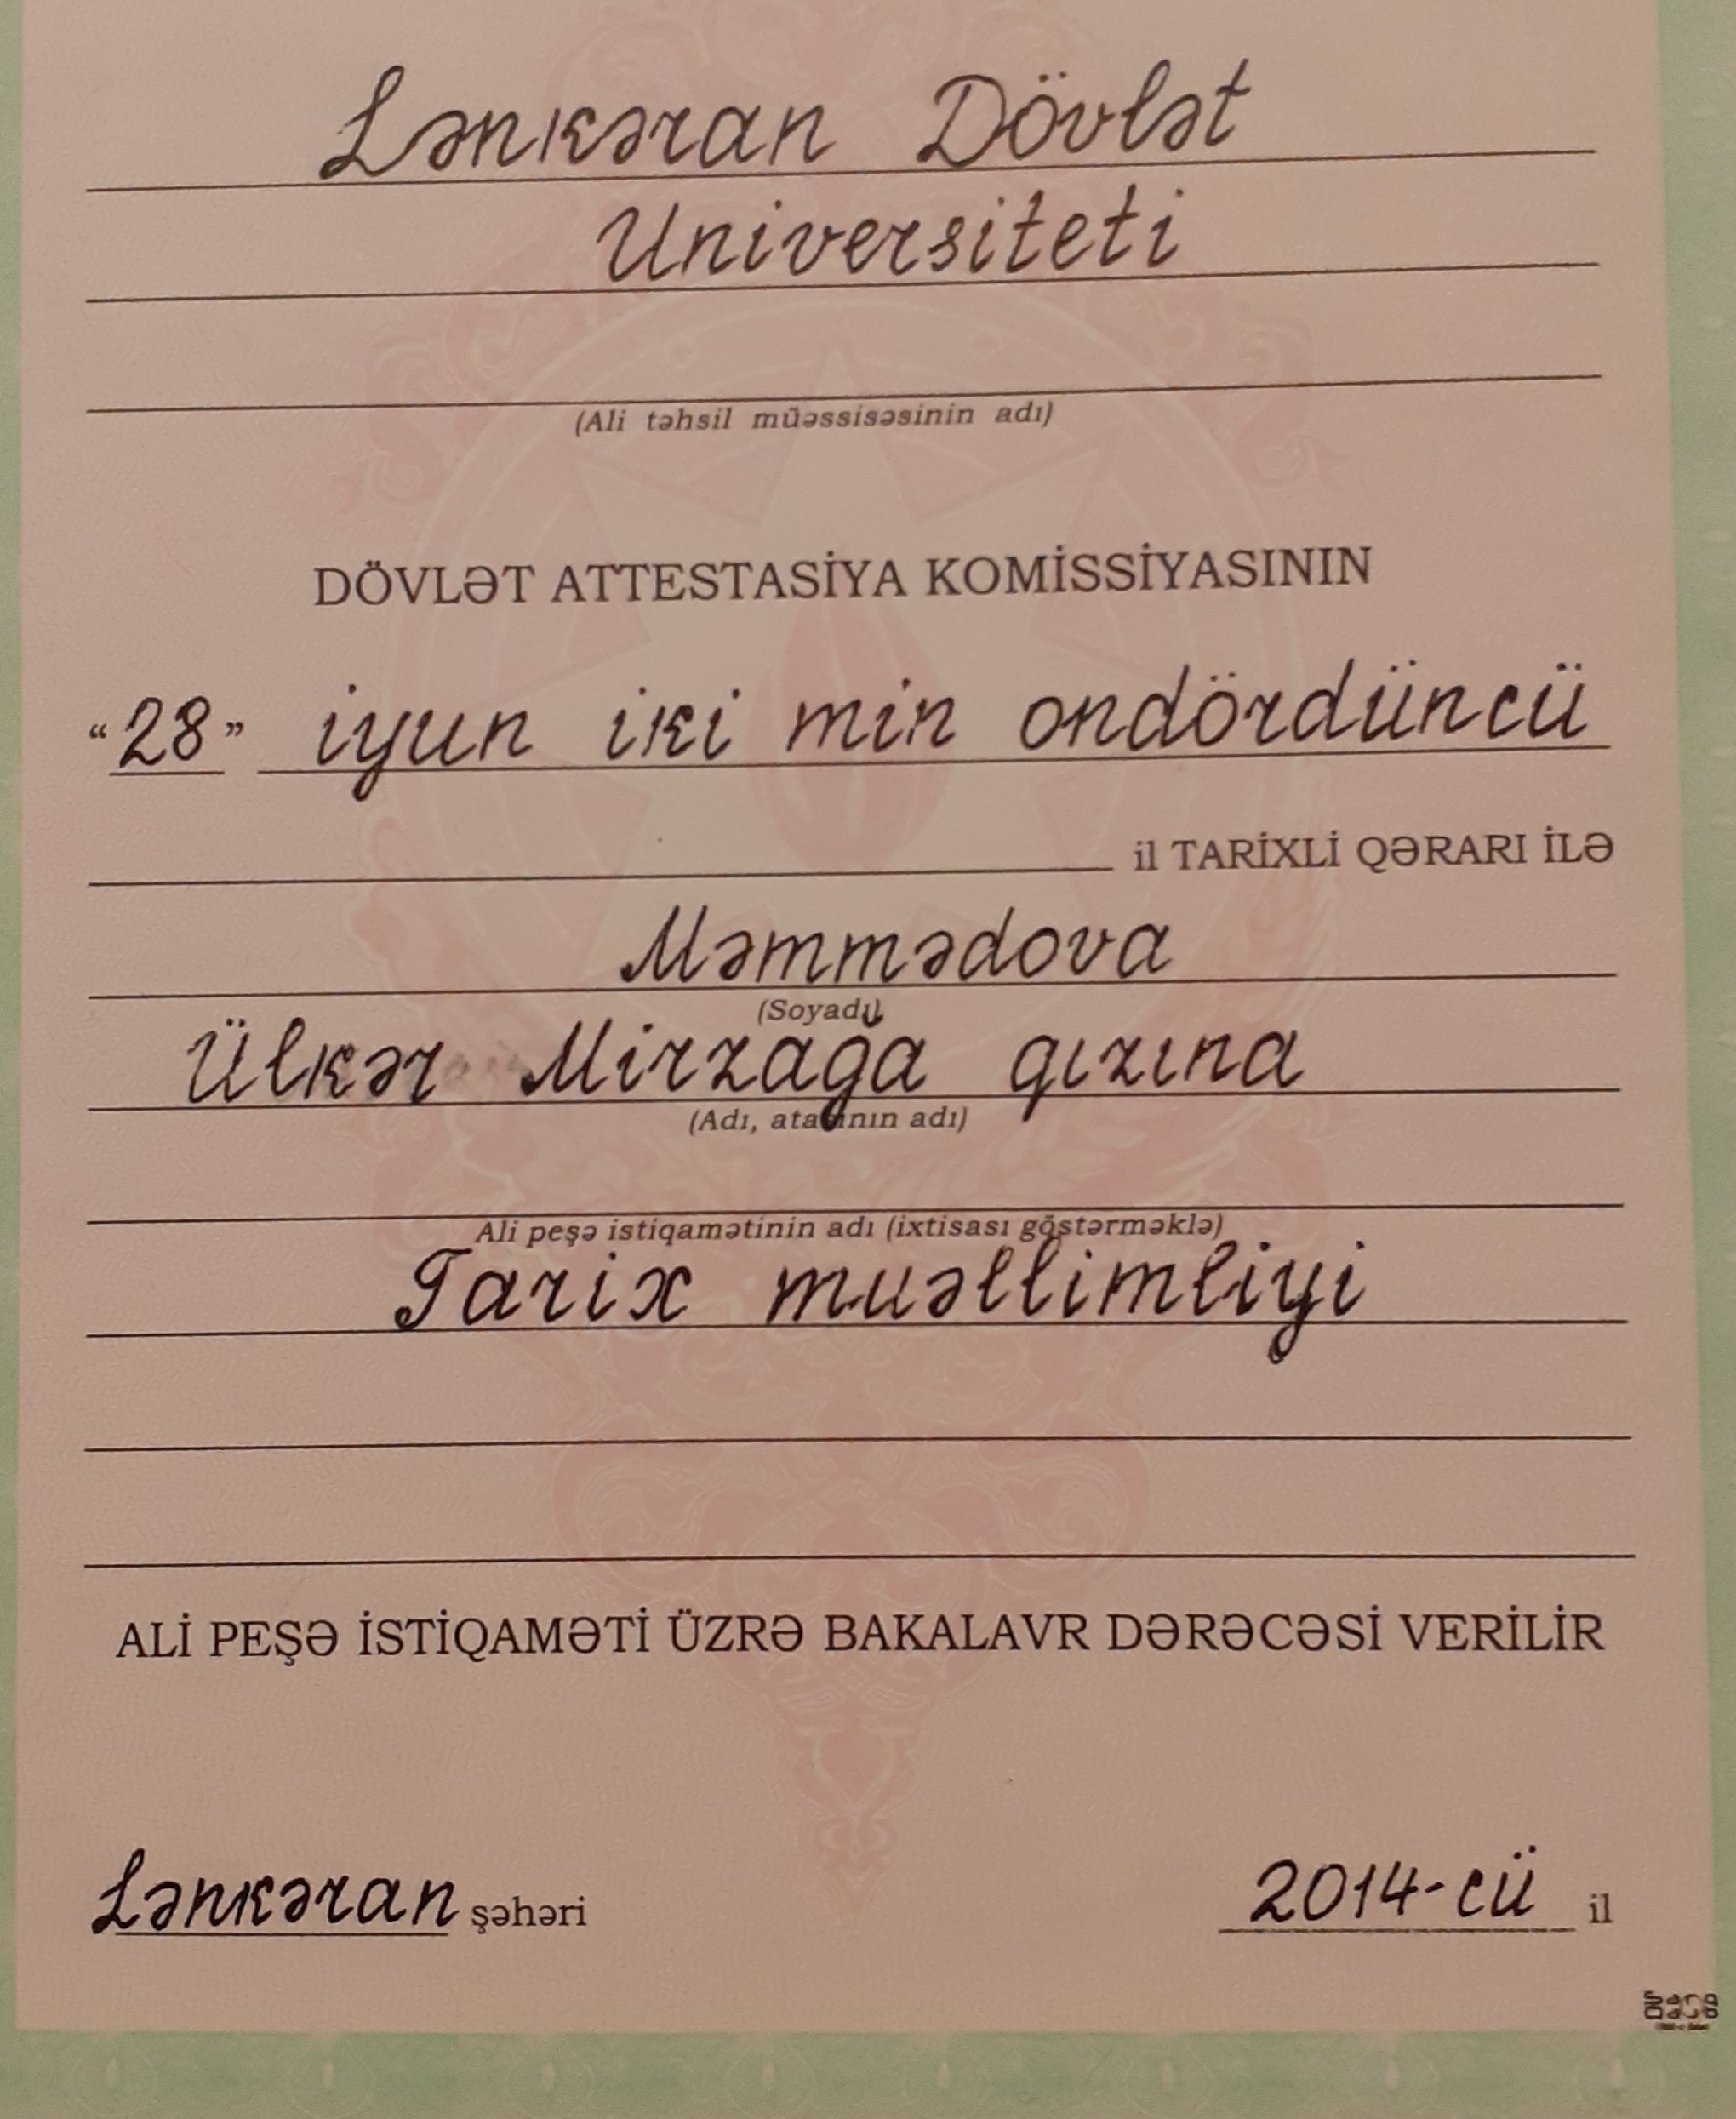 Lənkəran Dövlət
Universiteti
(Ali təhsil müəssisəsinin adı)
DÖVLƏT ATTESTASİYA KOMİSSİYASININ
“28” iyun iki min ondördüncü
il TARİXLİ QƏRARI İLƏ
Məmmədova
(Soyadı)
Ülkər Mirzağa qızına
(Adı, atasının adı)
Ali peşə istiqamətinin adı (ixtisası göstərməklə)
Tarix muəllimliyi
ALİ PEŞƏ İSTİQAMƏTİ ÜZRƏ BAKALAVR DƏRƏCƏSİ VERİLİR
Lənkəran şəhəri 2014-cü il